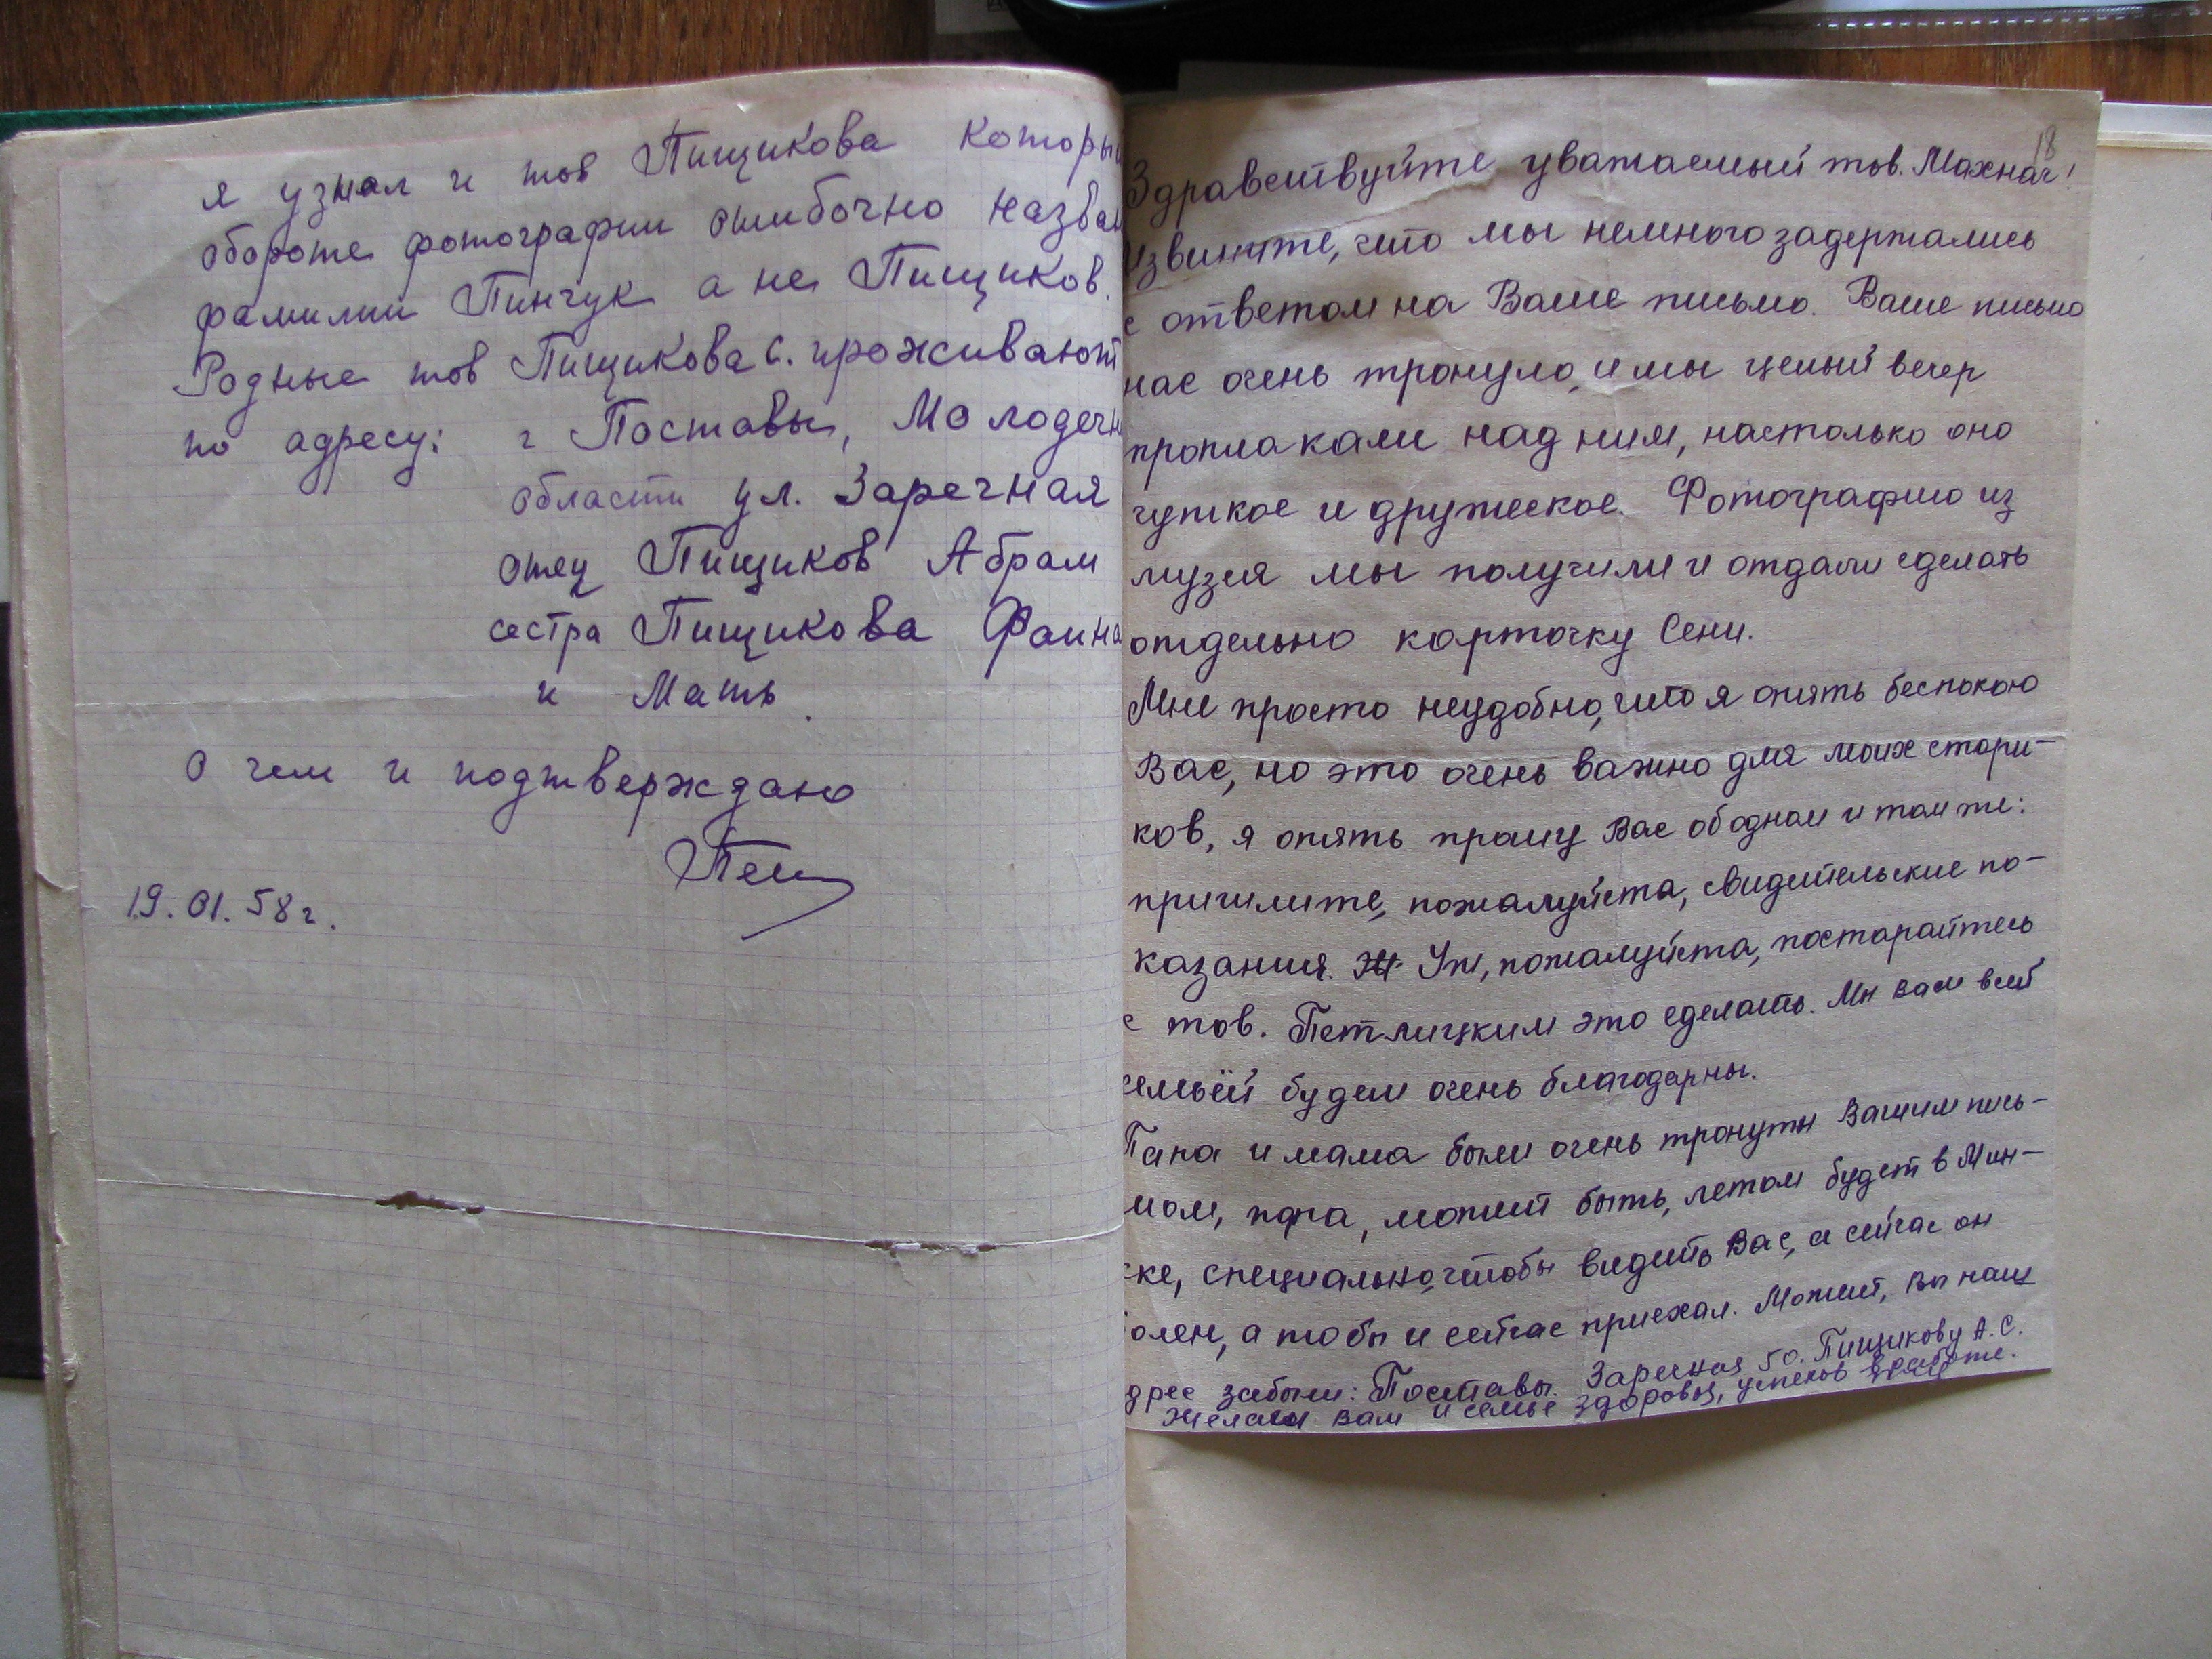 я узнал и тов Пищикова которы
обороте фотографии ошибочно назван
фамилии Пинчук а не Пищиков.
Родные тов Пищикова С. проживают
по адресу: г Поставы, Молодечн
области ул. Заречная
отец Пищиков Абрам
сестра Пищикова Фаина
и Мать.
О чем и подтверждаю
19.01.58г.
18
Здравствуйте уважаемый тов. Махнач!
Извините, что мы немного задержались
с ответом на Ваше письмо. Ваше письмо
нас очень тронуло, и мы целый вечер
проплакали над ним, настолько оно
чуткое и дружеское. Фотографию из
музея мы получили и отдали сделать
отдельно карточку Сени.
Мне просто неудобно, что я опять беспокою
Вас, но это очень важно для моих стари-
ков, я опять прошу Вас об одном и том же:
пришлите, пожалуйста, свидетельские по-
казания. Уж, пожалуйста, постарайтесь
с тов. Петлицким это сделать. Мы вам всей
семьёй будем очень благодарны.
Папа и мама были очень тронуты Вашим пись-
мом, папа, может быть, летом будет в Мин-
ске, специально, чтобы видеть Вас, а сейчас он
олен, а то бы и сейчас приехал. Может, Вы наш
дрес забыли: Поставы. Заречная 50. Пищикову А.С.
Желаем Вам и семье здоровья, успехов в работе.